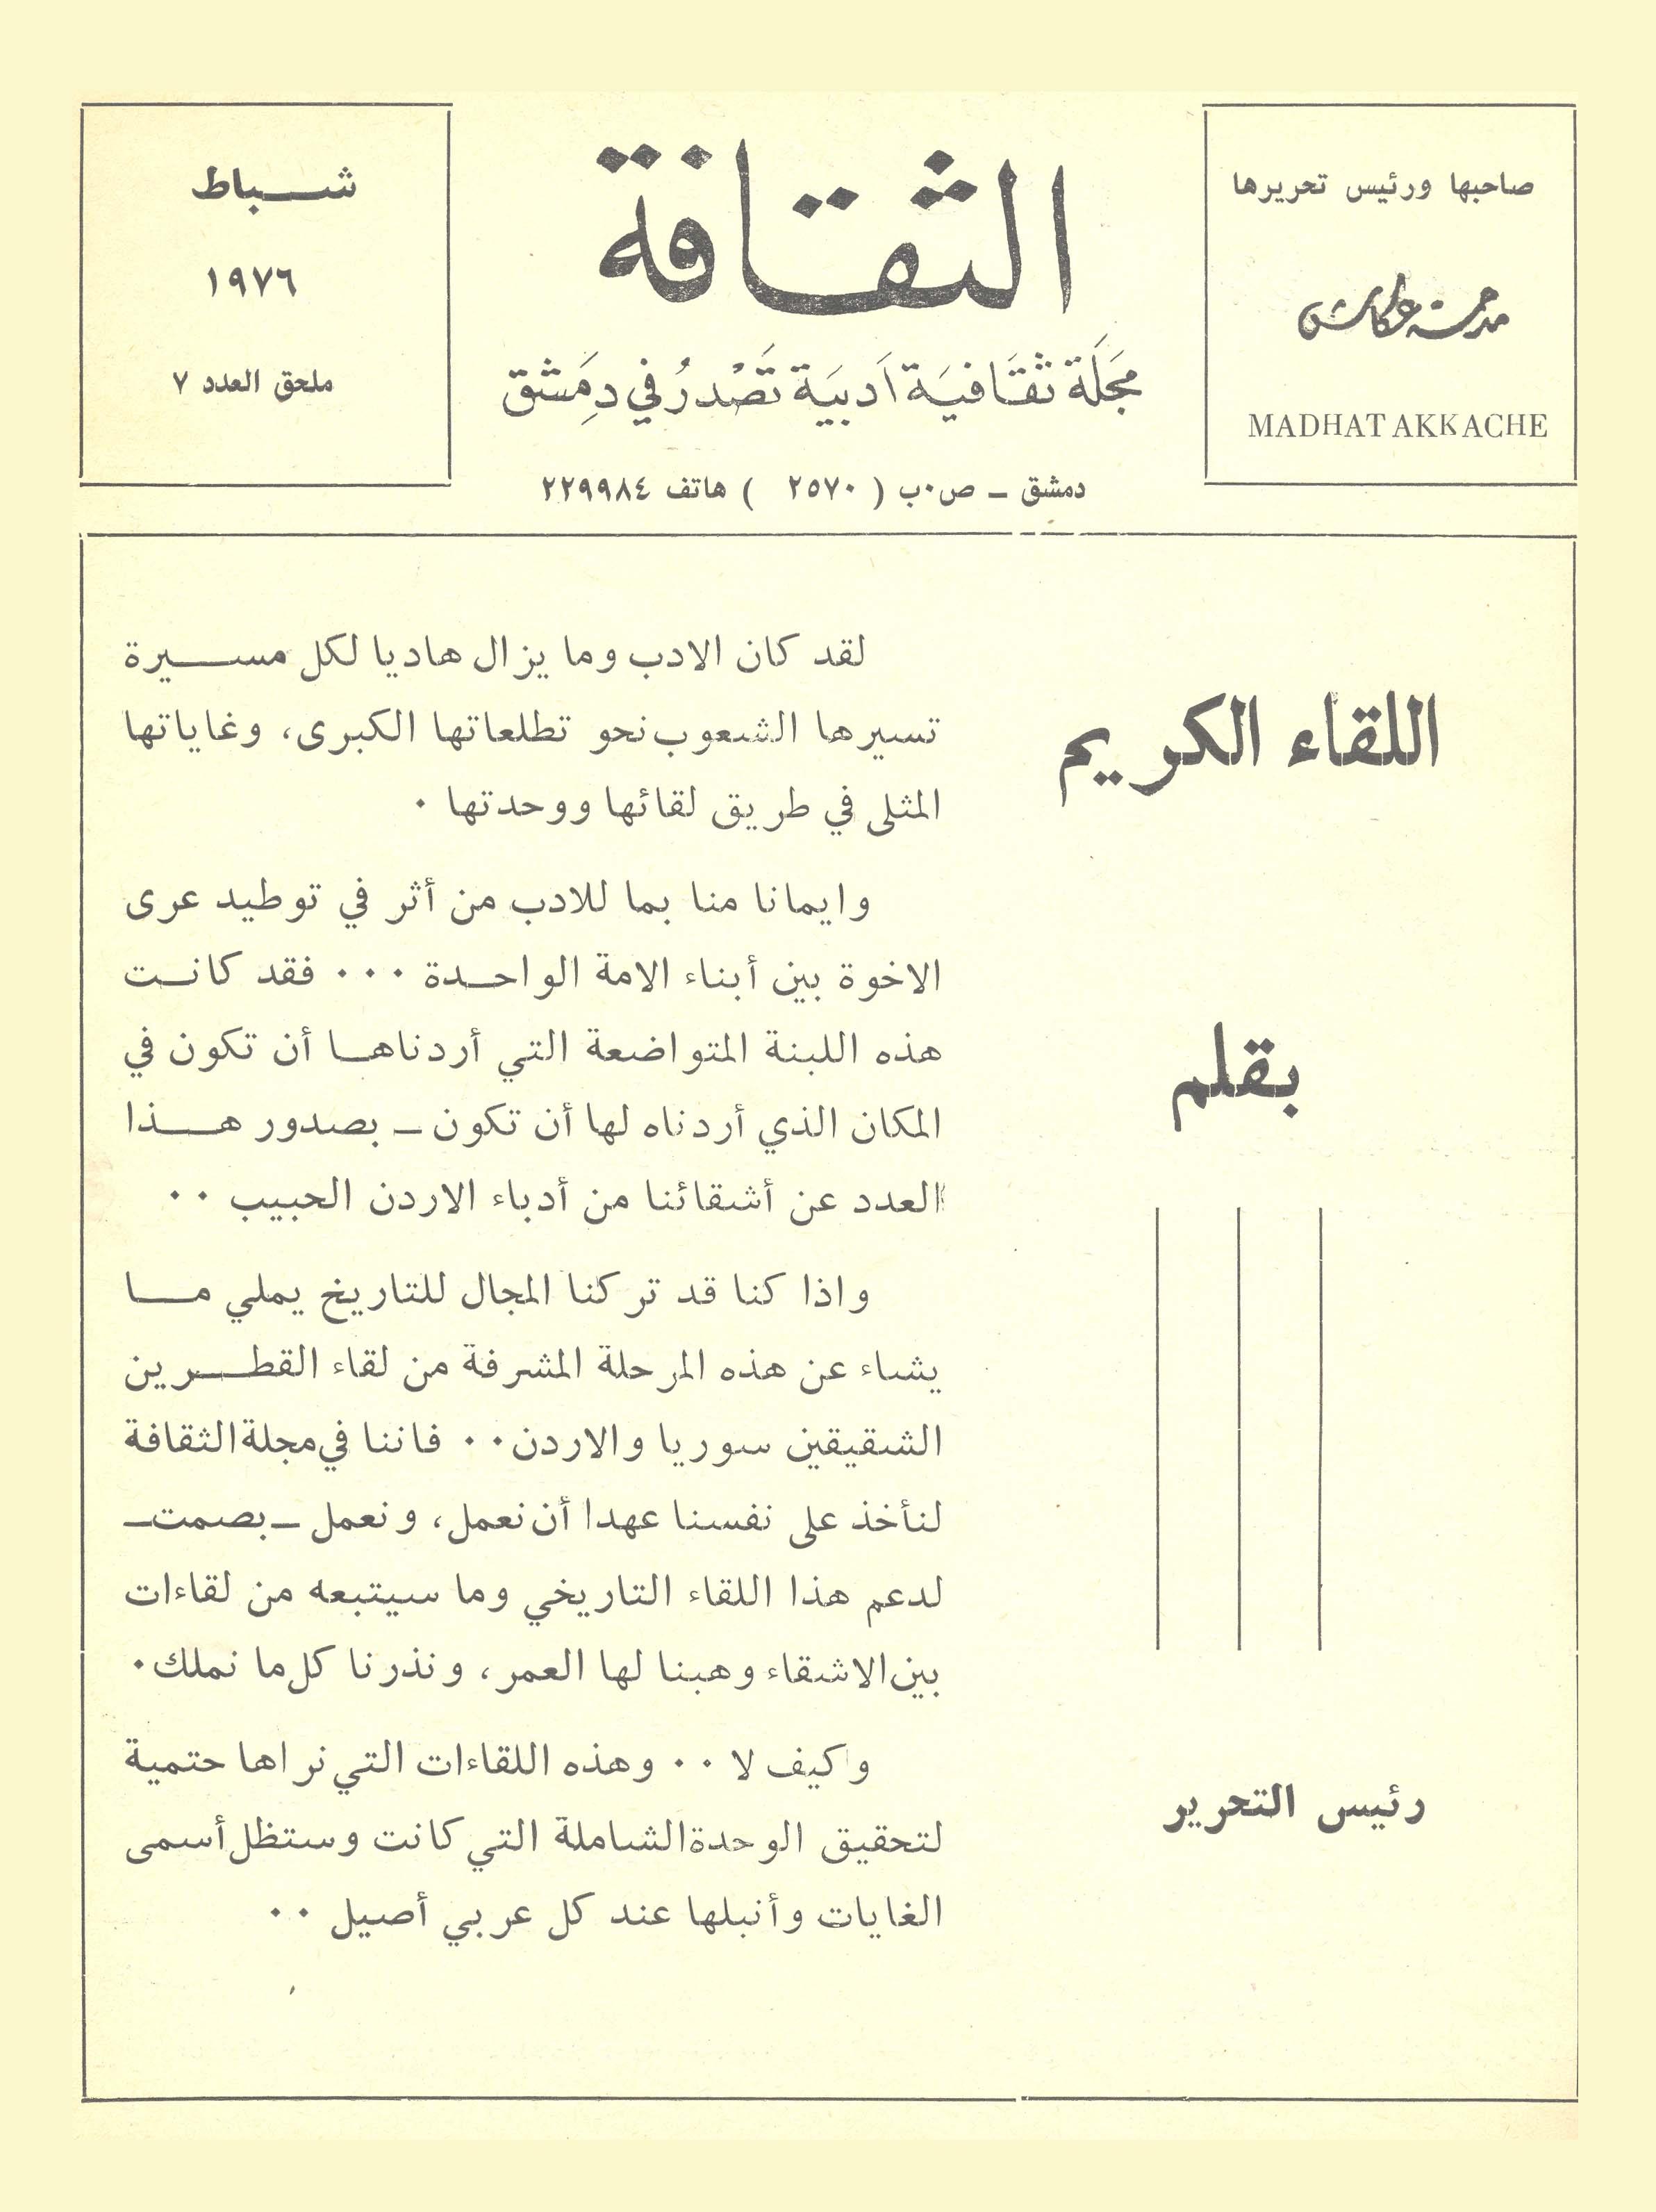 صاحبها ورئيس تحريرها
مدحة عكاش
MADHAT AKKACHE
الثقافة
مجلة ثقافية أدبية تصدر في دمشق
دمشق ــ ص٠ب ( ٢٥٧٠ ) هاتف ٢٢٩٩٨٤
شباط
١٩٧٦
ملحق العدد ٧
اللقاء الكريم
بقلم
رئيس التحرير
لقد كان الادب وما يزال هاديا لكل مسيرة
تسيرها الشعوب نحو تطلعاتها الكبرى، وغاياتها
المثلى في طريق لقائها ووحدتها ٠
وايمانا منا بما للادب من أثر في توطيد عرى
الاخوة بين أبناء الامة الواحدة ٠٠٠ فقد كانت
هذه اللبنة المتواضعة التي أردناها أن تكون في
المكان الذي أردناه لها أن تكون ــ بصدور هذا
العدد عن أشقائنا من أدباء الاردن الحبيب ٠٠
واذا كنا قد تركنا المجال للتاريخ يملي ما
يشاء عن هذه المرحلة المشرفة من لقاء القطرين
الشقيقين سوريا والاردن٠٠ فاننا في مجلة الثقافة
لنأخذ على نفسنا عهدا أن نعمل، ونعمل ــ بصمت ــ
لدعم هذا اللقاء التاريخي وما سيتبعه من لقاءات
بين الاشقاء وهبنا لها العمر، ونذرنا كل ما نملك٠
وكيف لا ٠٠ وهذه اللقاءات التي نراها حتمية
لتحقيق الوحدة الشاملة التي كانت وستظل أسمى
الغايات وأنبلها عند كل عربي أصيل ٠٠